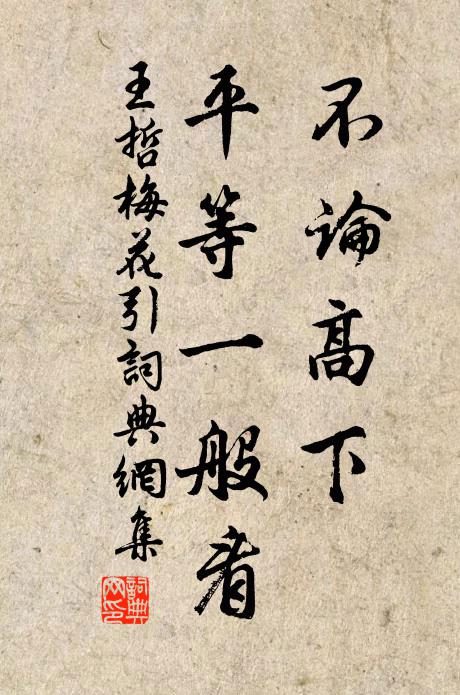 不論高下
平等一般看
王哲梅花引詞典網集
詞典
网印